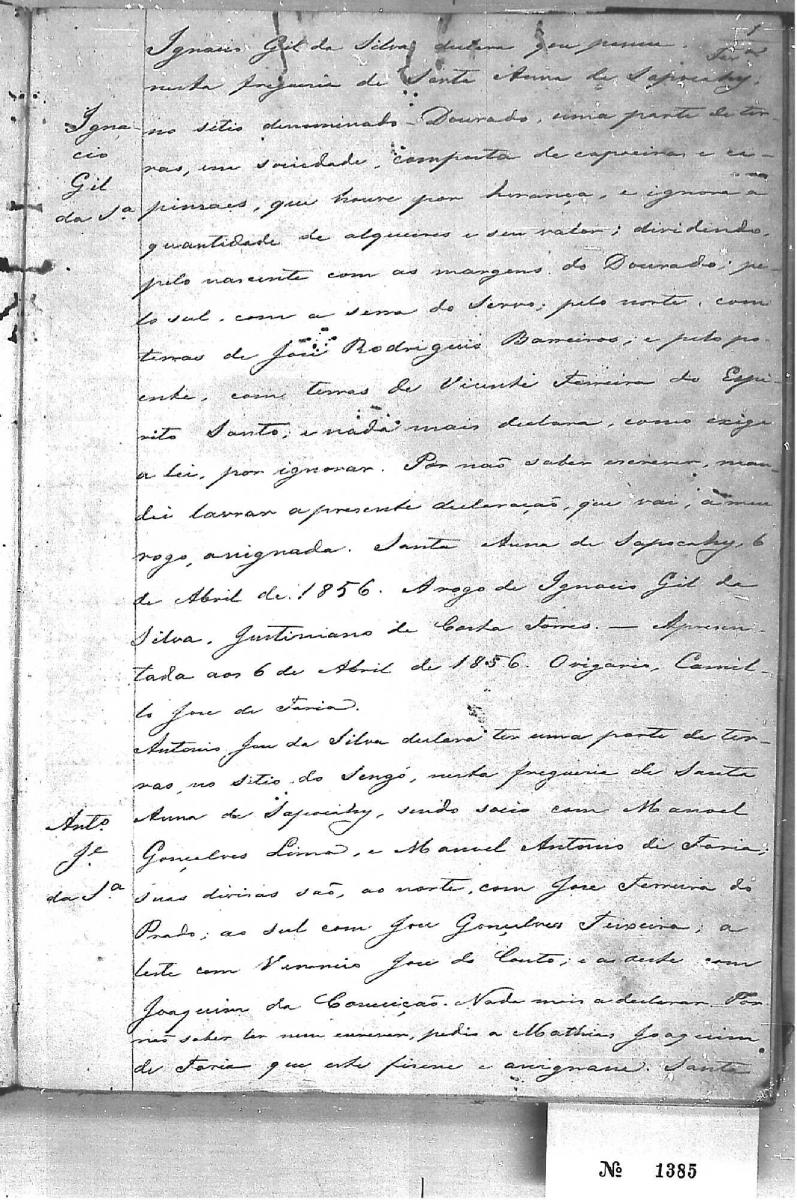 1
Ignacio Gil da Silva declara que possue
nesta freguesia de Santa Anna de Sapocahy,
Igna
cio
Gil
da Sª
no sitio denominado Dourado, uma parte de ter-
ras, em sociedade, composta de capoeiras e ca-
pinsaes, que houve por herança, e ignora a
quantidade de alqueires e seu valor; dividindo,
pelo nascente com as margens do Dourado; pe-
lo sul, com a serra do Servo; pelo norte, com
terras de José Rodrigues Barreiros; e pelo po-
ente, com terras de Vicente Ferreira do Espi-
rito Santo; e nada mais declara, como exige
a lei, por ignorar. Por não saber escrever, man-
dei lavrar a presente declaração, que vai, a meu
rogo, assignada. Santa Anna de Sapocahy, 6
de Abril de 1856. A rogo de Ignacio Gil da
Silva, Justiniano de Costa Torres. — Apresen-
tada aos 6 de Abril de 1856. O vigario, Camil-
lo José de Faria.
Antonio José da Silva declara ter uma parte de ter-
ras, no sitio do Sengó, nesta freguesia de Santa
Antº
Jº
da Sª
Anna de Sapocahy, sendo socio com Manoel
Gonçalves Lima, e Manoel Antonio de Faria;
suas divisas são, ao norte, com José Ferreira do
Prado; ao sul com José Gonçalves Teixeira; a
leste com Venancio José do Couto; e a oeste com
Joaquim da Conceição. Nada mais a declarar. Por
não saber ler nem escrever, pediu a Mathias Joaquim
de Faria que este fizesse e assignasse. Santa
Nº 1385